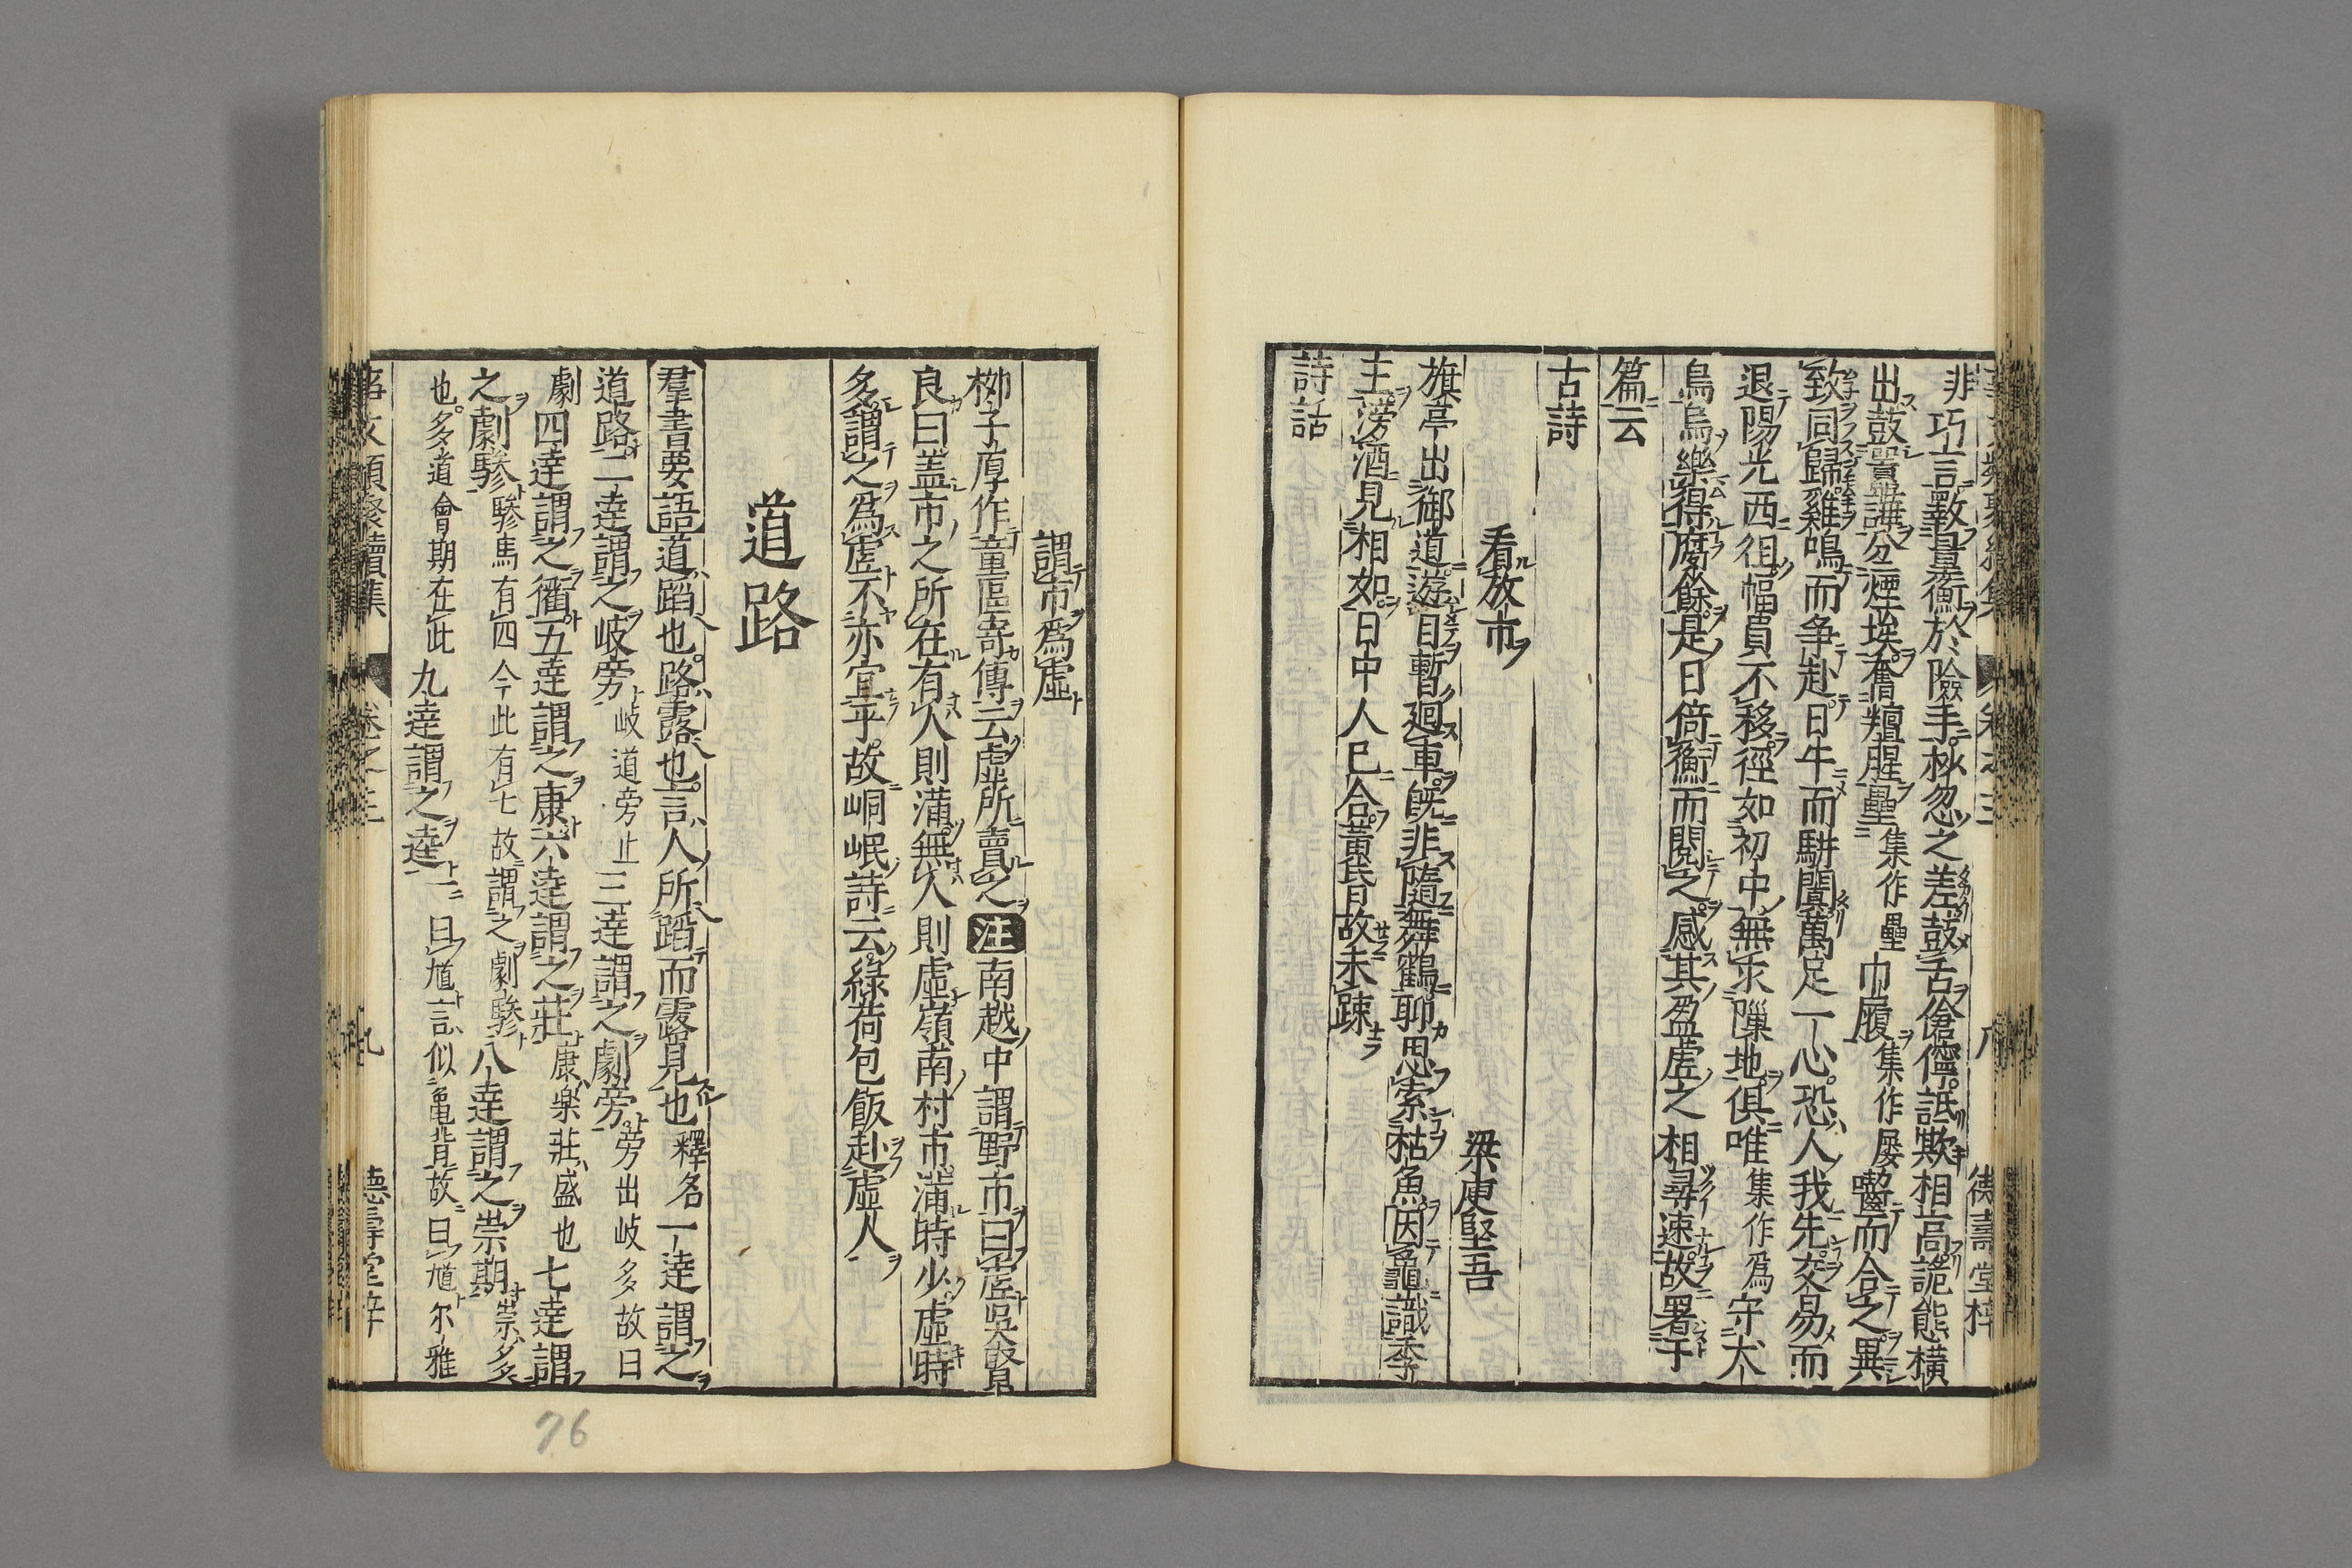 非巧言斁量衡於險手杪忽之差鼓舌傖儜詆欺相高詭態橫
出鼓囂譁坌煙埃奮羶腥壘集作疊巾屨集作屡囓而合之異
致同歸雞鳴而争赴日午而駢闐萬足一心恐人我先交易而
退陽光西徂幅員不移徑如初中無求隟地俱唯集作爲守犬
烏烏樂得腐餘是日倚衡而閱之感其盈虗之相尋速故署于
篇云
古詩
看放市 梁庾堅吾
旗亭出御道遊目暫廻車旣非隨舞鶴聊思索枯魚因龜識季
主滂酒見相如日中人已合黄昏故未踈
詩話
謂市爲虛
栁子厚作童區寄傳云虛所賣之注南越中謂野市曰虗吳䝨
良曰盖市之所在有人則蒲無人則虛嶺南村市蒲時少虛時
多謂之爲虗不亦宜乎故峒岷詩云緑荷包飯赴虛人
道路
羣書要語道蹈也路露也言人所蹈而露見也釋名一達謂之
道路二達謂之岐旁岐道旁止三達謂之劇旁旁出岐多故曰
劇四達謂之衢五達謂之康六達謂之莊康樂莊盛也七達謂
之劇驂驂馬有四今此有七故謂之劇驂八達謂之崇期崇多
也多道會期在此九達謂之逵一曰馗言似亀背故曰馗尔雅
事文類聚續集 卷之三 九 德壽堂梓